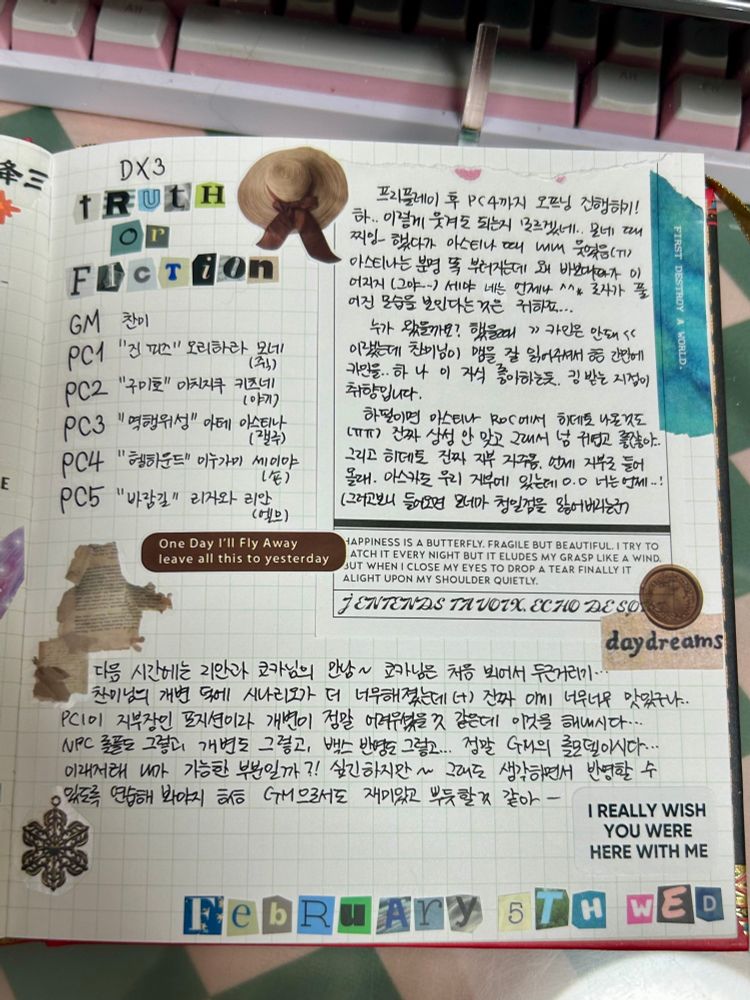 条三
DX3
tRUtH
or
Fiction
GM 찬이
PC1 "건 피즈" 오리하라 모네
(주릭)
PC2 "구미호" 아치지쿠 키즈네
(야기)
PC3 "역행위성" 아테 아스티나
(갤주)
PC4 "헬하운드" 이누가미 세이야
PC5 "바람길" 리자와 리안
(엘므)
프리플레이 후 PC4까지 오프닝 진행하기!
하.. 이렇게 웃겨도 되는지 모르겠네.. 모네 때
찡잉~ 했다가 아스티나 때 내내 웃었음(ㅠ)
아스티나는 분명 똑 부러지는데 왜
어지지 (그야~) 세야 네는 언제나 ^^ 로자가 풀
어진 모습을 보인다는 것은 귀하죠...
누가 왔을까요? 했을때 >> 카인은 안돼 <<
이랬는데 찬이님이 맵을 잘 읽어주셔서 간만에
카인을.. 하 나 이 자식 좋아하는듯. 킹 받는 지점이
취향입니다.
하필이면 아스티나 ROC에서 히데토 나온것도
(ㅠㅠ) 진짜 상성 안 맞고 그래서 넘 귀엽고 좋잖아..
그리고 히데토 진짜 지부 언제 지부로 들어
올래. 아스카도 우리 지부에 있는데 0.0 너는 언제..!
(그러고보니 들어오면 모네가 청일점을 잃어버리는군?)
FIRST DESTROY A WORLD.
One Day I'll Fly Away
leave all this to yesterday
HAPPINESS IS A BUTTERFLY. FRAGILE BUT BEAUTIFUL. I TRY TO
CATCH IT EVERY NIGHT BUT IT ELUDES MY GRASP LIKE A WIND.
BUT WHEN I CLOSE MY EYES TO DROP A TEAR FINALLY IT
ALIGHT UPON MY SHOULDER QUIETLY.
J'ENTENDS TA VOIX. ECHO DE
daydreams
다음 시간에는 리안과 쿄카님의 만남~ 쿄카님은 처음 뵈어서 두근거리기...
찬이님의 개변 덕에 시나리오가 더 너무해졌는데(+) 진짜 이미 너무너무 맛있구나..
PC1이 지부장인 포지션이라 개변이 정말 어려우셨을 것 같은데 이것을 해내시다...
NPC 롤플도 그렇고, 개변도 그렇고, 백스 반영도 그렇고... 정말 GM의 롤모델이시다...
이래저래 내가 가능한 부분일까?! 싶긴하지만~ 그래도 생각하면서 반영할 수
있도록 연습해 봐야지 하하 GM으로서도 재미있고 뿌듯할 것 같아 —
I REALLY WISH
YOU WERE
HERE WITH ME
February 5TH WED